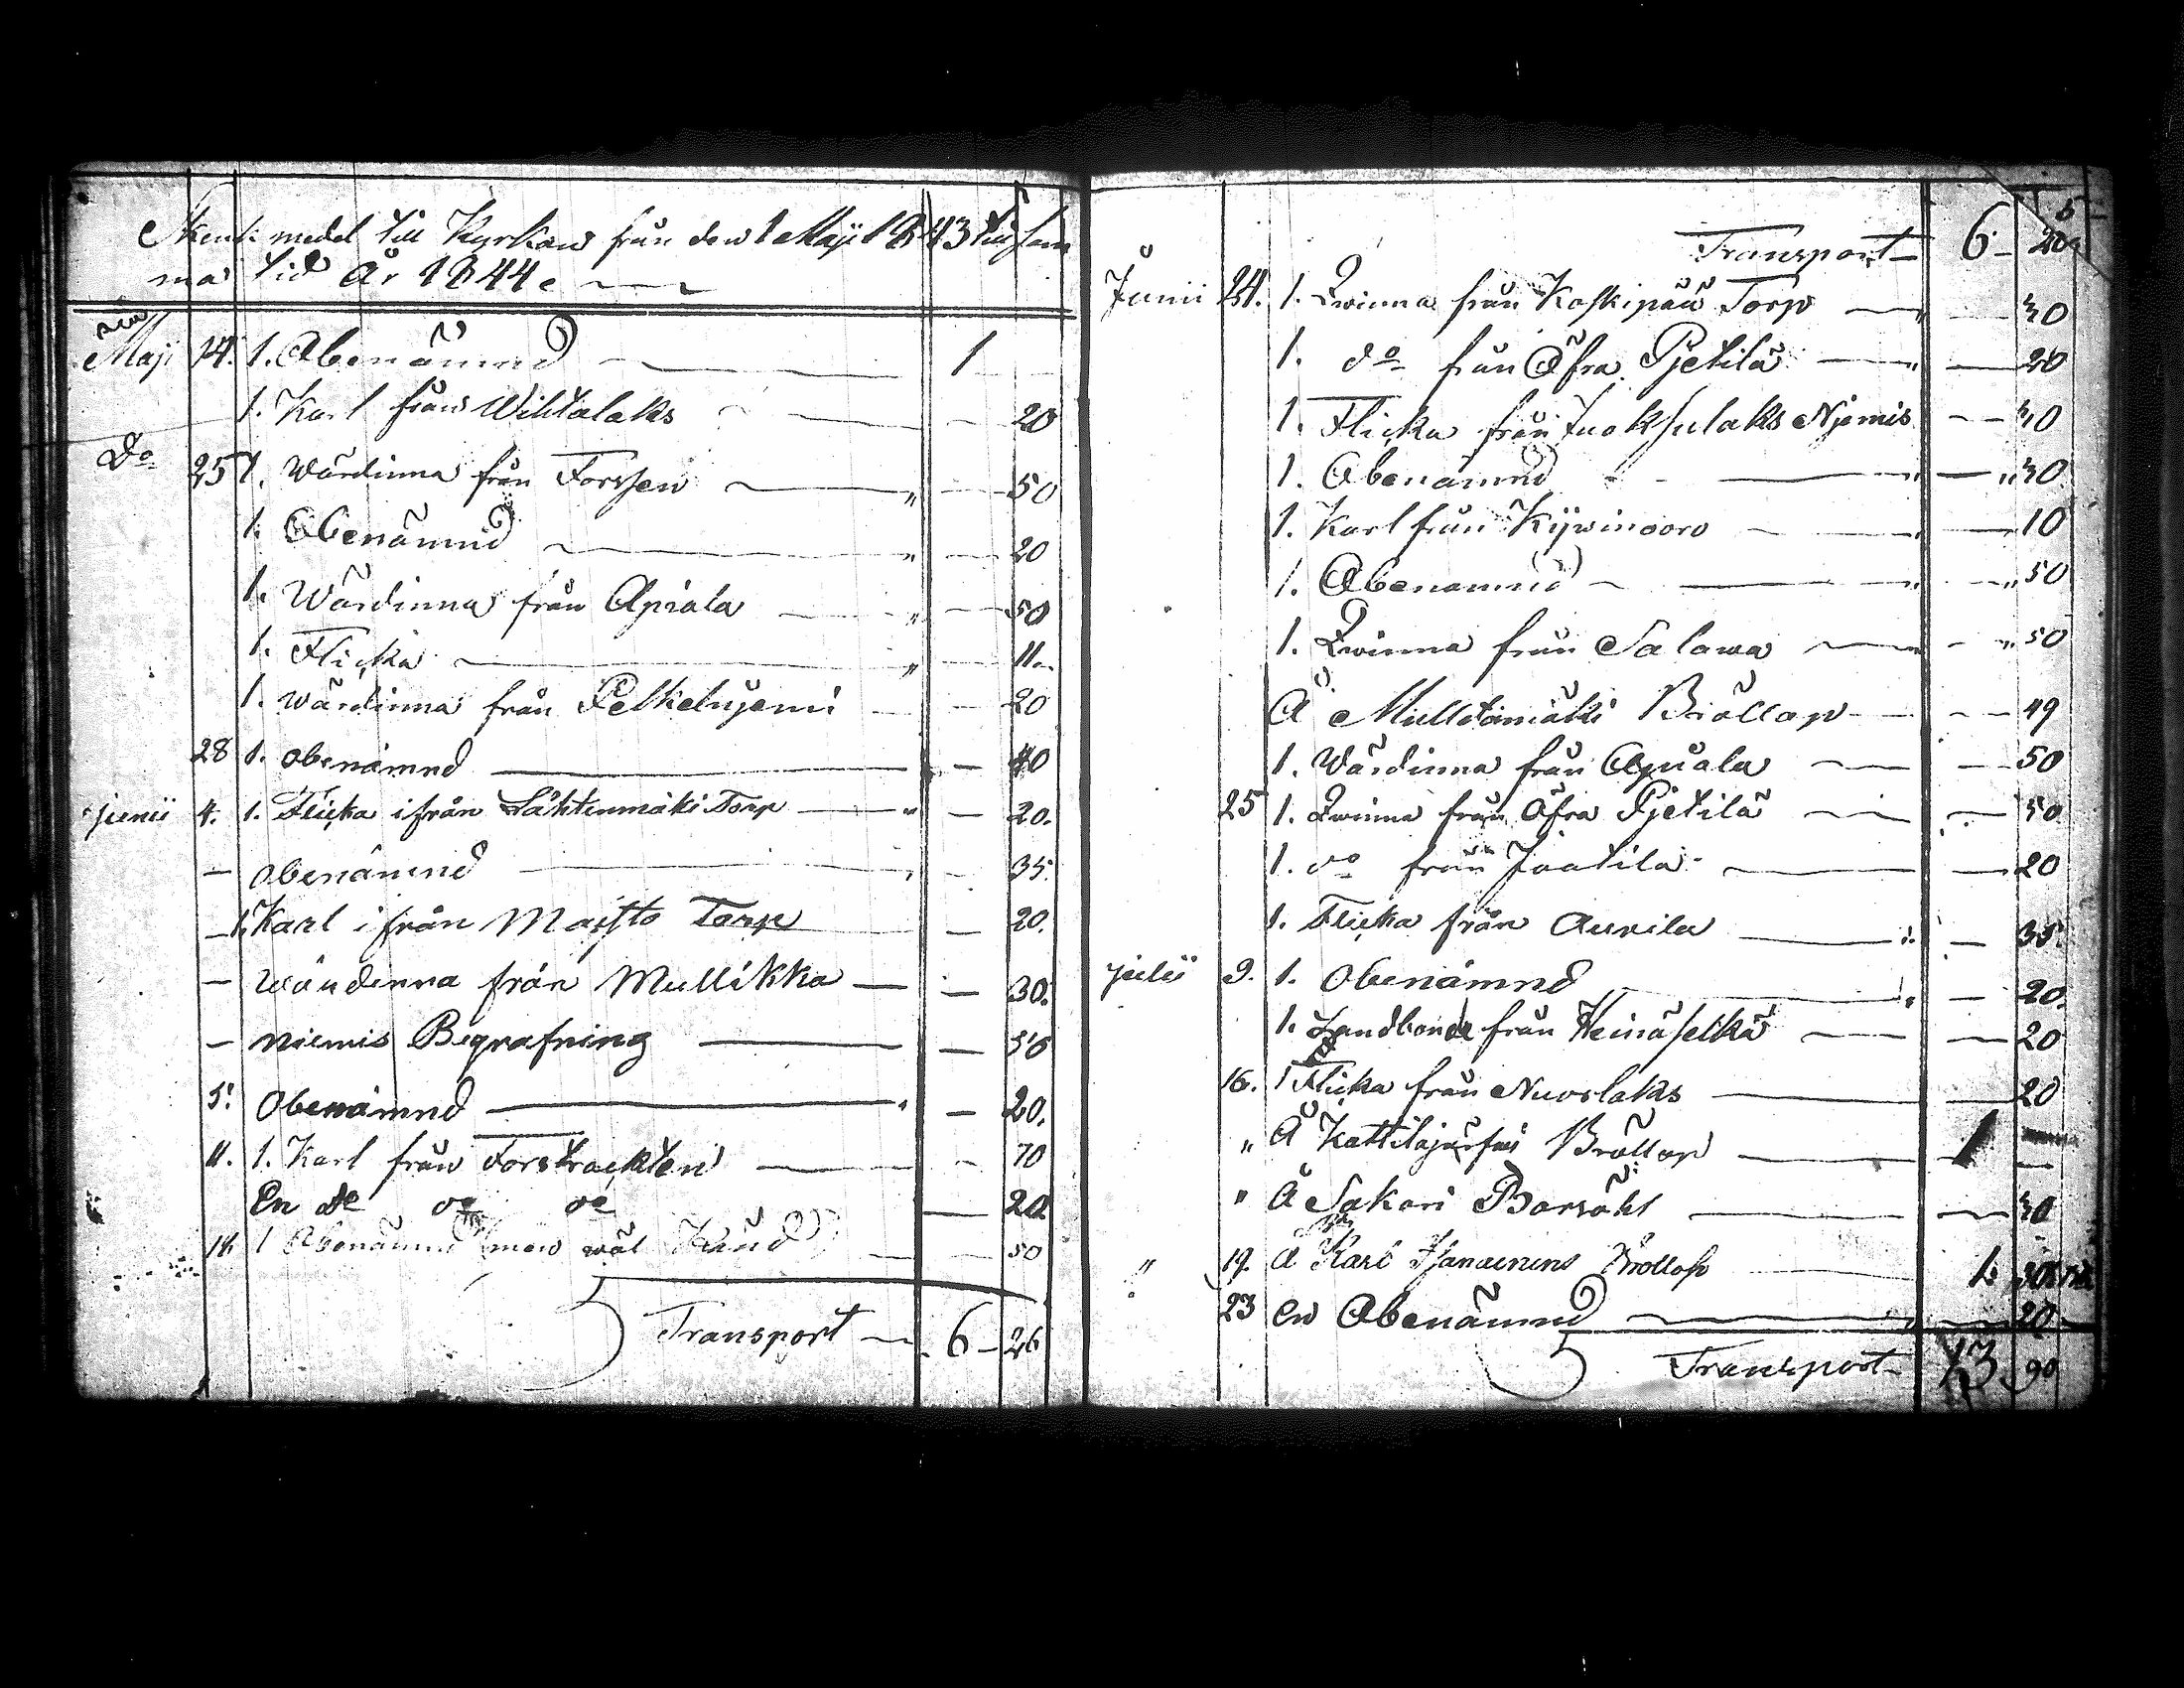 Skenk: medel till Kyrkan från den 1 Maji 1843 till sam
ma tid År 1844.
Maji 14. 1. Obenämnd 1
1. Karl från Wihtalaks 20
Do 25 1. Wärdinna från Forssen 50
1. Obenämnd 20
1. Wärdinna från Apiala 50
1. Flicka 11
1. Wärdinna från 20
28 1. obenämnd 40
junii 4. 1. Flicka ifrån Lähtenmäki Torp 20.
— obenämnd 35.
— 1. Karl ifrån Maisto Torp 20.
— Wärdinna från Mullikka 30.
— niemis Begrafning 50
5. Obenämnd 20.
11. 1. Karl från Forstrackten 70
En de do do 20
18. 1 Obenämnd 50
Transport 6 26
5
Transport 6
Junii 24. 1. Qwinna från Koskipää Torp 40
1. do från Öfra Pjetilä 20
1. Flicka från Njemis 40
1. Obenämnd 40
1. Karl från Kywinooro 10
1. Obenämnd 50
1. Qwinna från Salawa 50
Å Bröllop 49
1. Wärdinna från Apiala 50
25 1. Qwinna från Öfra Pjetilä 50
1. do från Jaatila 20
1. Flicka från Aurila 35.
julii 9. 1. Obenämnd 20.
1. Landbonde från Heinäselkä 20
16. 1 Flicka från Nuorlaks 20
" Å Kattilajärfwi Bröllop 1
" Å Sakari Barsöhl 40
" 19. Å Karl Bröllop 1.
23 en Obenämnd 20
Transport 13 90